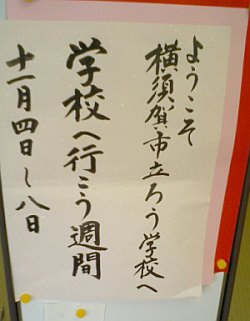 ようこそ
横須賀市立ろう学校へ
学校へ行こう週間
十一月四日～八日